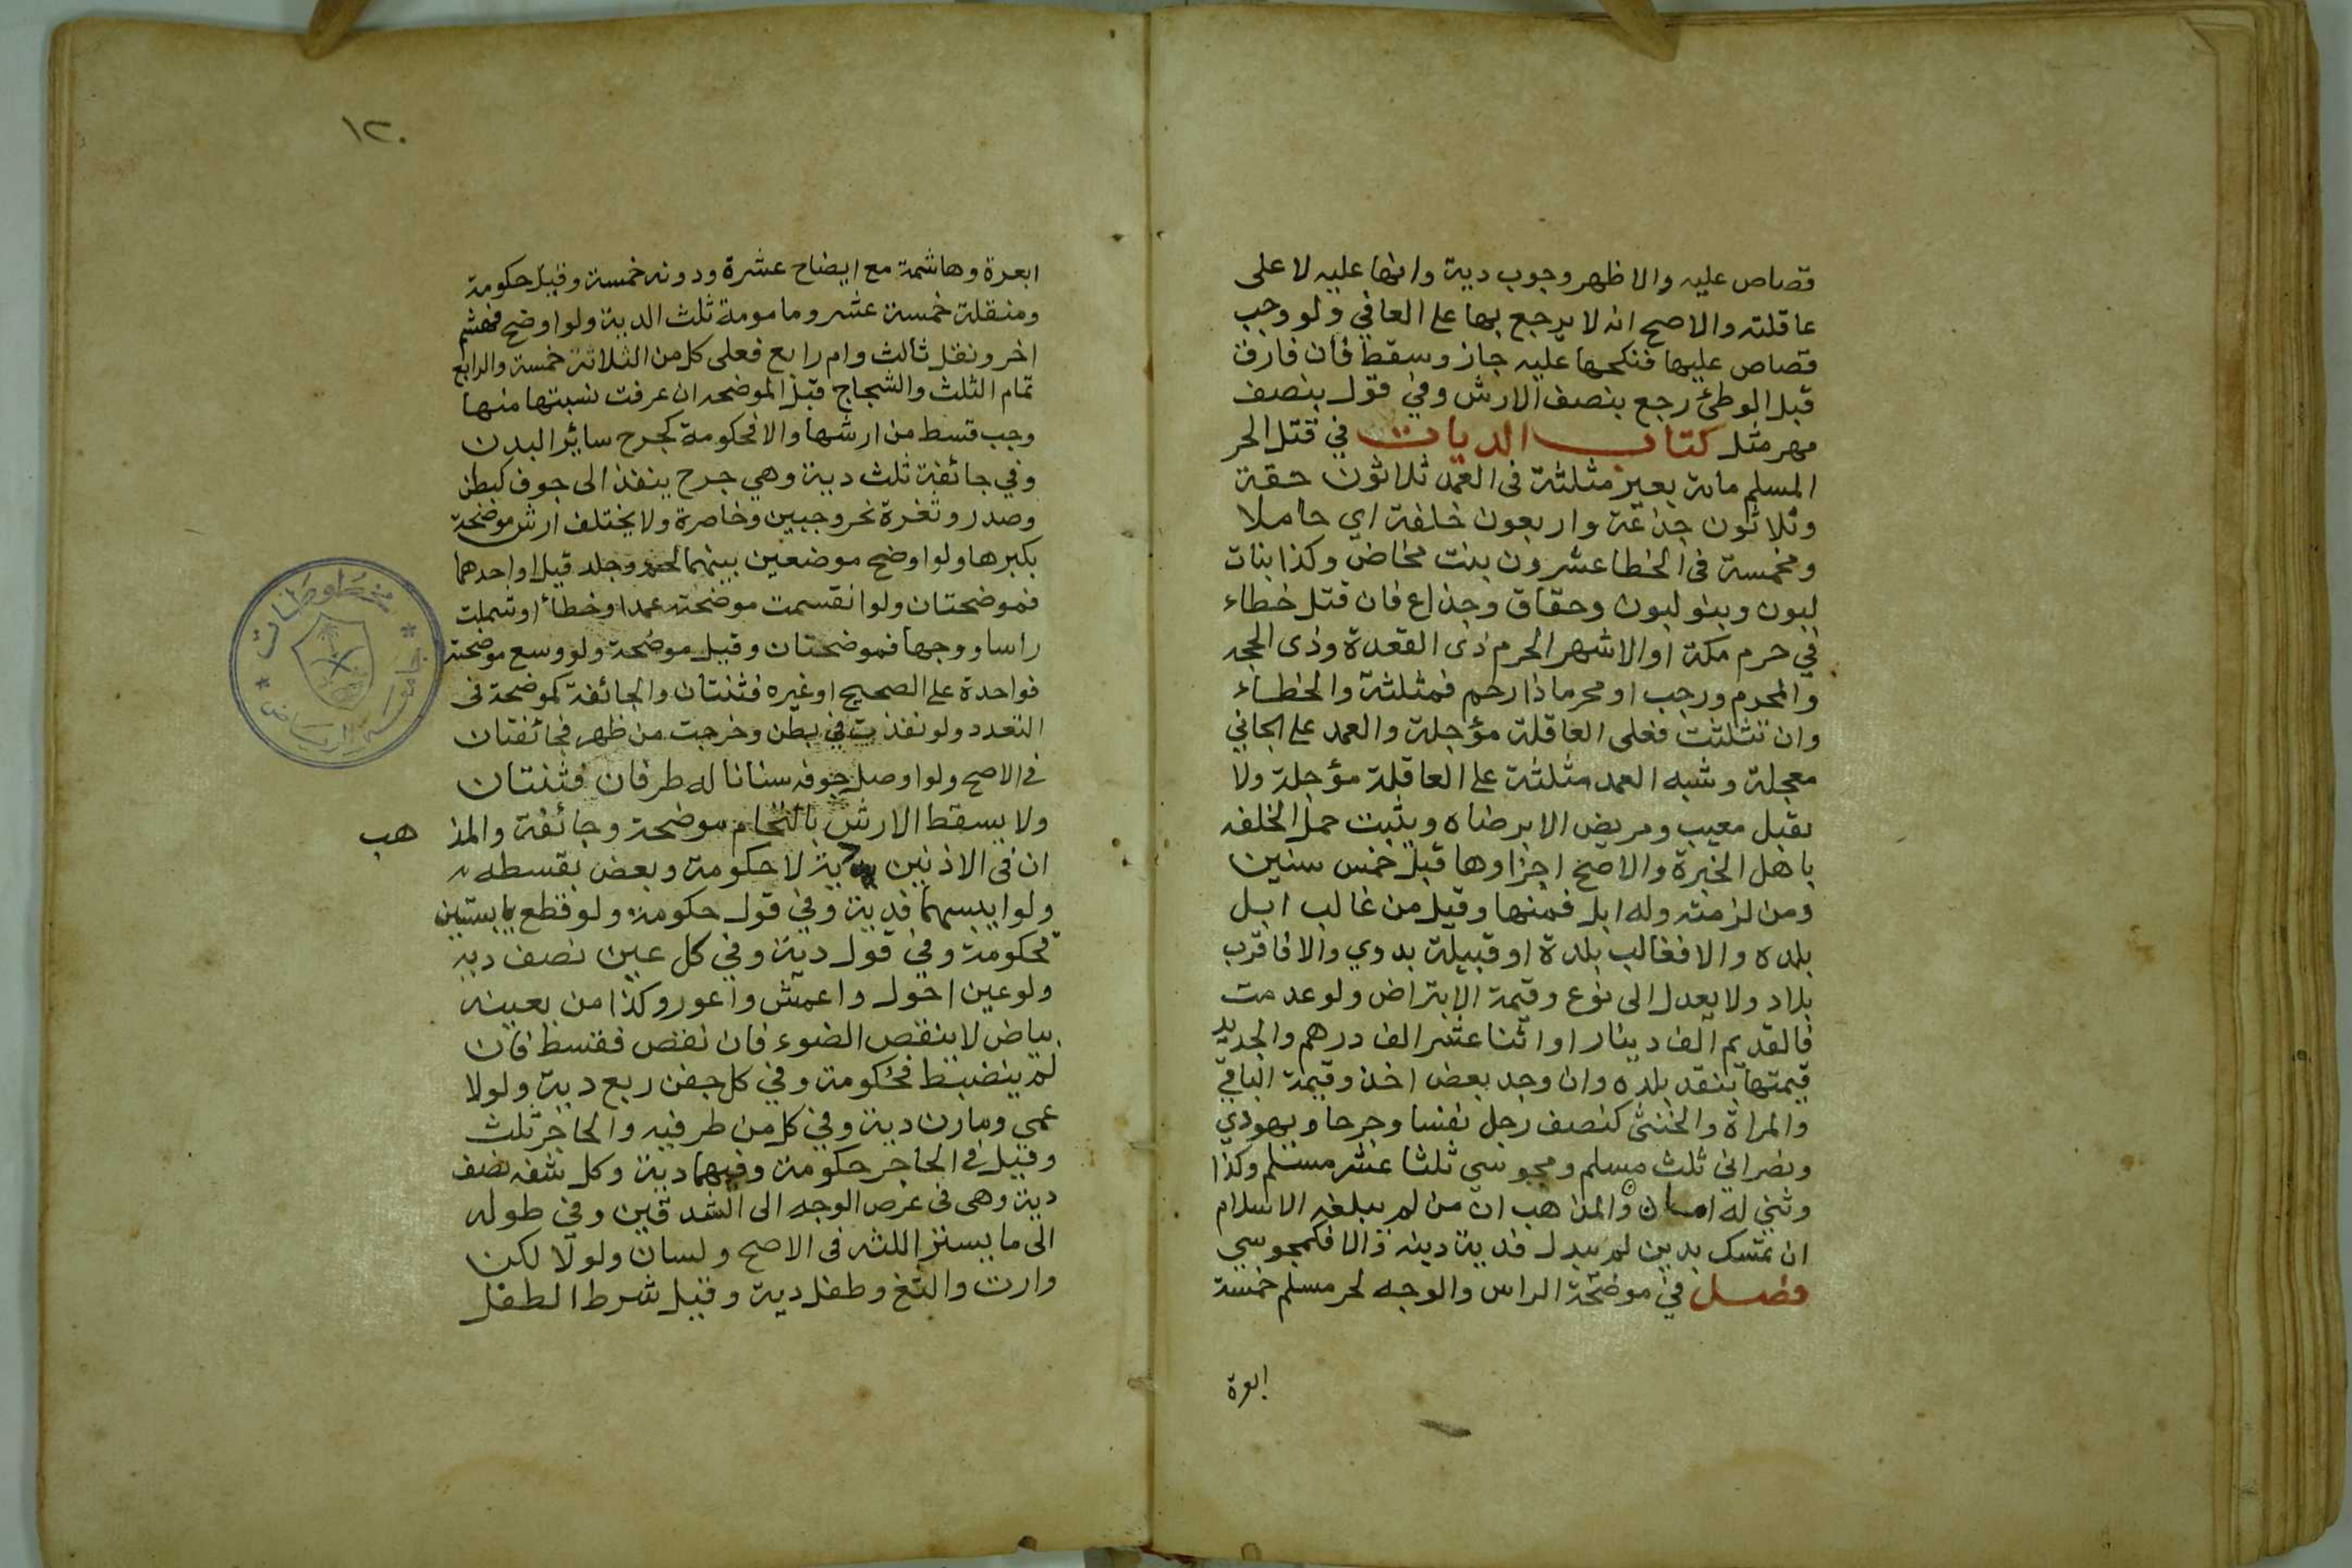 قصاص عليه والاظهر وجوب دية وانها عليه لا على
عاقلته والاصح انه لا يرجع بها على العافي ولو وجب
قصاص عليها فنكحها عليه جاز وسقط فان فارق
قبل الوطئ رجع بنصف الارش وفي قول بنصف
مهر مثل كتاب الديات في قتل الحر
المسلم مائة بعير مثلثة فى العمد ثلاثون حقة
وثلاثون جذعة واربعون خلفة اي حاملا
ومخمسة فى الخطا عشرون بنت مخاض وكذا بنات
لبون وبنو لبون وحقاق وجذاع فان قتل خطاء
في حرم مكة او الاشهر الحرم ذى القعدة وذى الحجه
والمحرم ورجب او محرما ذا رحم فمثلثة والخطاء
وان تثلثت فعلى العاقلة مؤجلة والعمد على الجاني
معجلة وشبه العمد مثلثة على العاقلة مؤجلة ولا
يقبل معيب ومريض الا برضاه ويثبت حمل الخلفه
باهل الخبرة والاصح اجزاوها قبل خمس سنين
ومن لزمته وله ابل فمنها وقيل من غالب ابل
بلده والا فغالب بلدة او قبيلة بدوي والا فاقرب
بلاد ولا يعدل الى نوع وقيمة الا بتراض ولو عدمت
فالقديم الف دينار او اثنا عشر الف درهم والجديد
قيمتها بنقد بلده وان وجد بعض اخذ وقيمة الباقي
والمراة والخنثى كنصف رجل نفسا وجرحا ويهودي
ونصراني ثلث مسلم ومجوسي ثلثا عشر مسلم وكذا
وثني له امان والمذهب ان من لم يبلغه الاسلام
ان تمسك بدين لم يبدل فدية دينه والا فكمجوسي
فصل في موضحة الراس والوجه لحر مسلم خمسة
ابعرة
١٢٠
ابعرة وهاشمة مع ايضاح عشرة ودونه خمسة وقيل حكومة
ومنقلة خمسة عشر ومامومة ثلث الدية ولو اوضح فهشم
اخر ونقل ثالث وام رابع فعلى كل من الثلاثة خمسة والرابع
تمام الثلث والشجاج قبل الموضحه ان عرفت نسبتها منها
وجب قسط من ارشها والا فحكومة كجرح سائر البدن
وفي جائفة ثلث دية وهي جرح ينفذ الى جوف كبطن
وصدر وثغرة نحر وجبين وخاصرة ولا يختلف ارش موضحة
بكبرها ولو اوضح موضعين بينهما لحم وجلد قيل او احدهما
فموضحتان ولو انقسمت موضحته عمدا وخطأ او شملت
راسا ووجها فموضحتان وقيل موضحة ولو وسع موضحته
فواحدة على الصحيح او غيره فثنتان والجائفة كموضحة فى
التعدد ولو نفذت في بطن وخرجت من ظهر فجائفتان
فى الاصح ولو اوصل جوفه سنانا له طرفان فثنتان
ولا يسقط الارش بالتحام موضحة وجائفة والمذ هب
ان فى الاذنين دية لا حكومة وبعض بقسطه
ولو ايبسهما فدية وفي قول حكومة ولو قطع يابستين
فحكومة وفي قول دية وفي كل عين نصف ديه
ولو عين احول واعمش واعور وكذا من بعينه
بياض لا ينقص الضوء فان نقص فقسط فان
لم ينضبط فحكومة وفي كل جفن ربع دية ولو لا
عمي ومارن دية وفي كل من طرفيه والحاجز ثلث
وقيل فى الحاجر حكومة وفيهما دية وكل شفه نصف
دية وهى فى عرض الوجه الى الشدقين وفي طوله
الى ما يستر اللثه فى الاصح ولسان ولو لالكن
وارت والثغ وطفل دية وقيل شرط الطفل